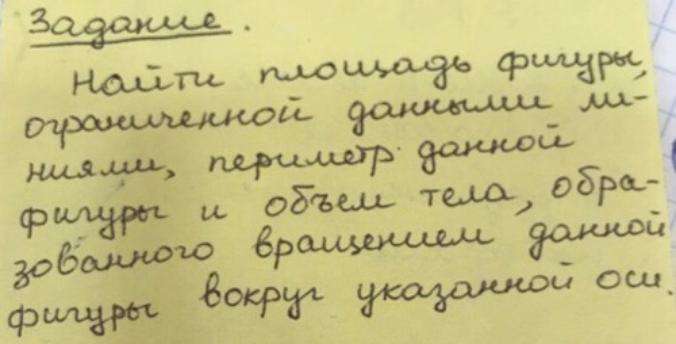 Задание.
Найти площадь фигуры,
ограниченной данными ли-
ниями, периметр данной
фигуры и объем тела, обра-
зованного вращением данной
фигуры вокруг указанной оси.